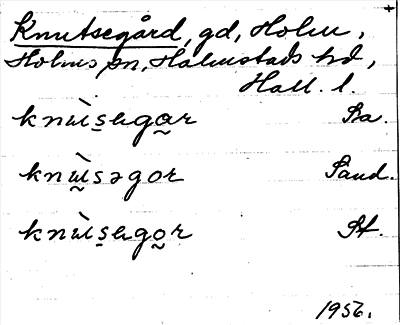 Knutsegård, gd, Holm,
Holms sn, Halmstads hd,
Hall. l.
knɯ̀s̱ɐgo̰r Sa.
knɯ̰̀səgor Sand.
knɯ̀s̱ɐgo̰r St.
1956.